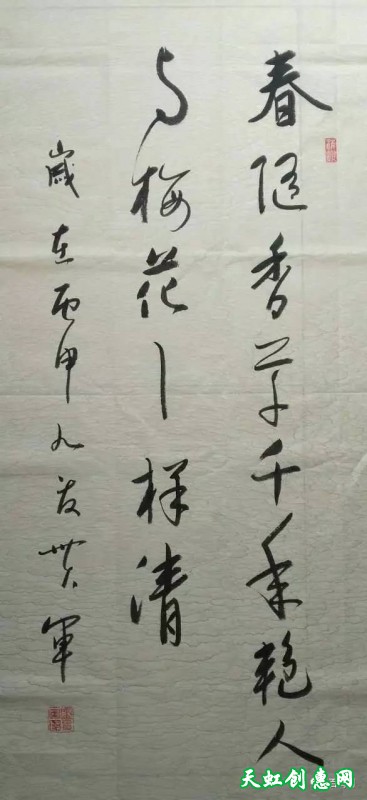 春随香草千年艳人
与梅花一样清
歲在丙申九軍
天虹创惠网